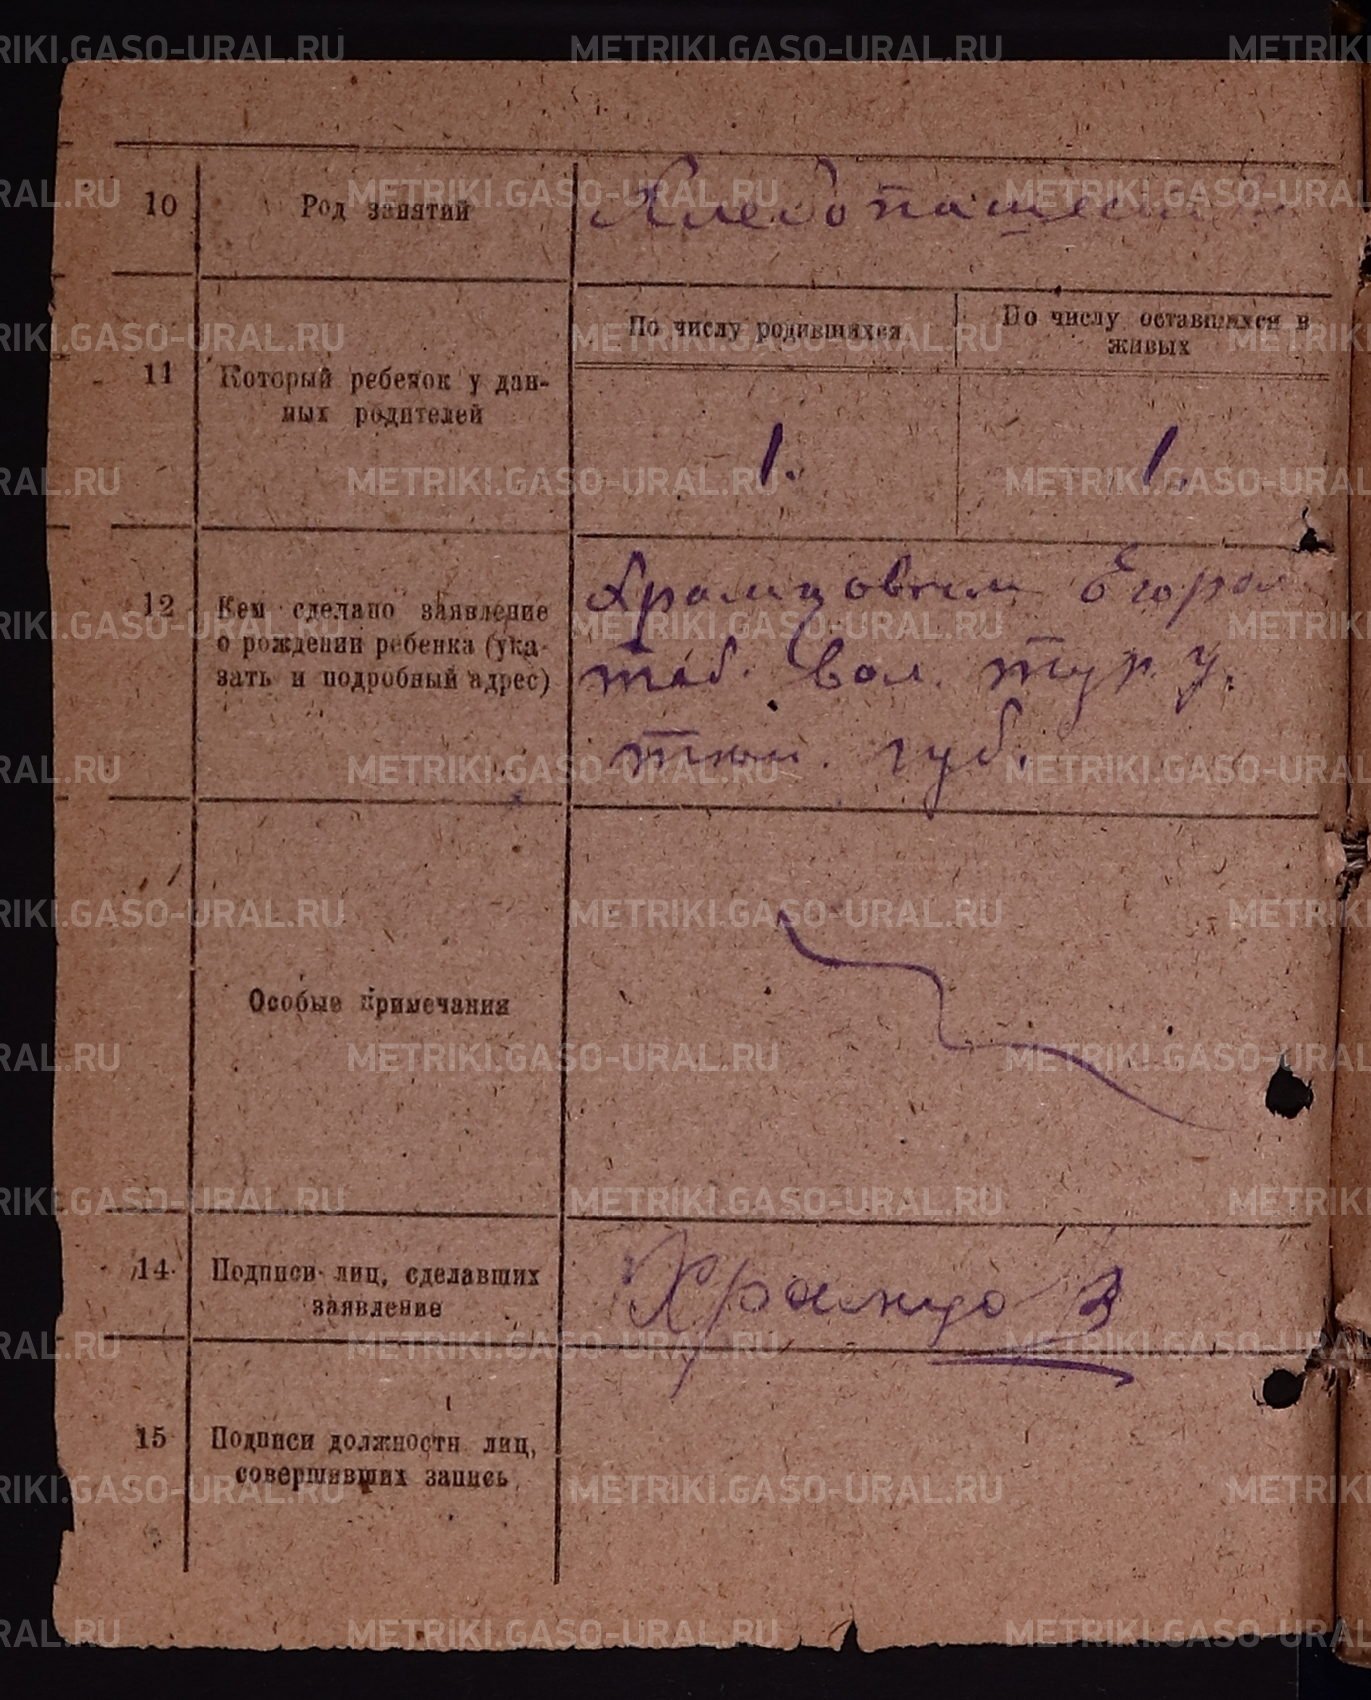 10 Род занятий Хлебопашество
11 Который ребенок у дан-
ных родителей
По числу родившихся
По числу оставшихся в
живых
1.
1.
12 Кем сделано заявление
о рождении ребенка (ука-
зать и подробный адрес)
Храмцовым Егором
таб. вол. тур. у.
тюм. губ.
Особые примечания
14 Подписи лиц, сделавших
заявление
Храмцов
15 Подписи должностн лиц,
совершивших запись
METRIKI.GASO-URAL.RU